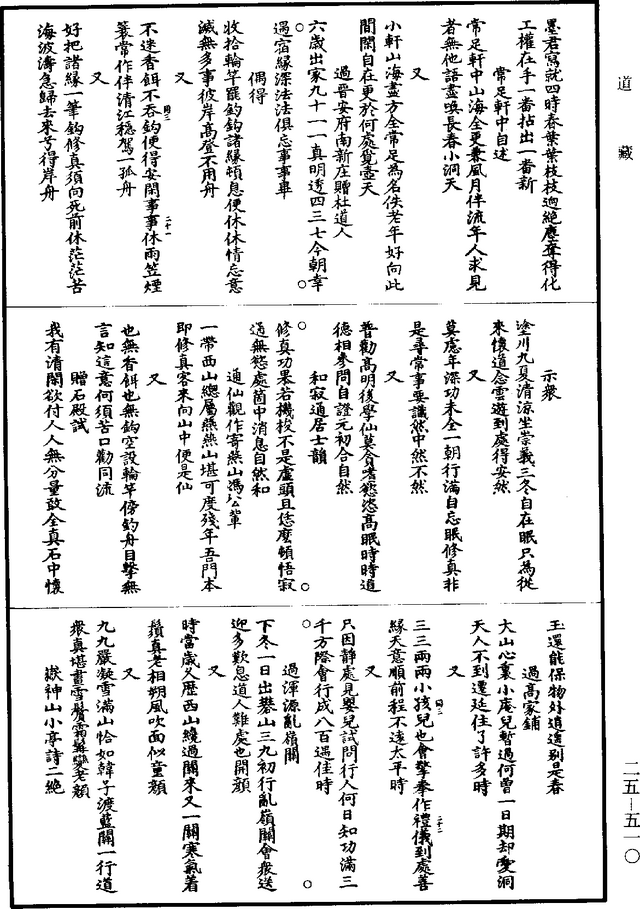 道藏
墨君寫就四時春葉葉枝枝迥絕塵奪得化
工權在手一番拈出一番新
常足軒中自述
常足軒中山海全更兼風月伴流年人求見
者無他語盡喚長春小洞天
又
小軒山海盡方全常足為名佚老年好向此
間閑自在更於何處覓壺天
過晉安府南新庄贈杜道人
六歲出家九十一一真明透四三七今朝幸
遇宿緣深法法俱忘事事畢
偶得
收拾輪竿罷釣鈎諸緣頓息便休休情忘意
滅無多事彼岸高登不用舟
又
不迷香餌不吞鈎便得安閑事事休雨笠煙
蓑常作伴清江穩駕一孤舟
又
好把諸緣一筆鈎修真須向死前休茫茫苦
海波濤急歸去來兮得岸舟
示衆
塗川九夏清涼坐崇義三冬自在眠只為從
來懷道念雲遊到處得安然
又
莫慮年深功未全一朝行滿自忘眠修真非
是尋常事要識然中然不然
又
普勸高明後學仙莫貪著慾恣高眠時時道
德相參問自證元初合自然
和寂通居士韻
修真功果若機投不是盧頭且恁麼頓悟寂
通無慾處箇中消息自然和
通仙觀作寄燕山馮公輩
一帶西山總屬燕燕山堪可度殘年吾門本
即修真客來向山中便是仙
又
也無香餌也無鈎空設輪竿傍釣舟目擊無
言知這意何須苦口勸同流
贈石殿試
我有清閑欲付人人無分量敢全真石中懷
玉還能保物外逍遙别是春
過高家鋪
大山心裏小庵兒暫過何曾一日期却愛洞
天人不到遷延住了許多時
又
三三兩兩小孩兒也會擎拳作禮儀到處善
緣天意順前程不遠太平時
又
只因靜處見嬰兒試問行人何日知功滿三
千方際會行成八百遇佳時
過渾源亂嶺關
下冬一日出礬山三九初行亂嶺關會衆送
迎多歎息道人難處也開顏
又
時當歲久歷西山纔過關來又一關寒氣着
鬚真老相朔風吹面似童顏
又
九九嚴凝雪滿山恰如韓子渡藍關一行道
衆真堪畫雪鬢霜髯變老顏
嶽神山小亭詩二絕
二五—五一〇